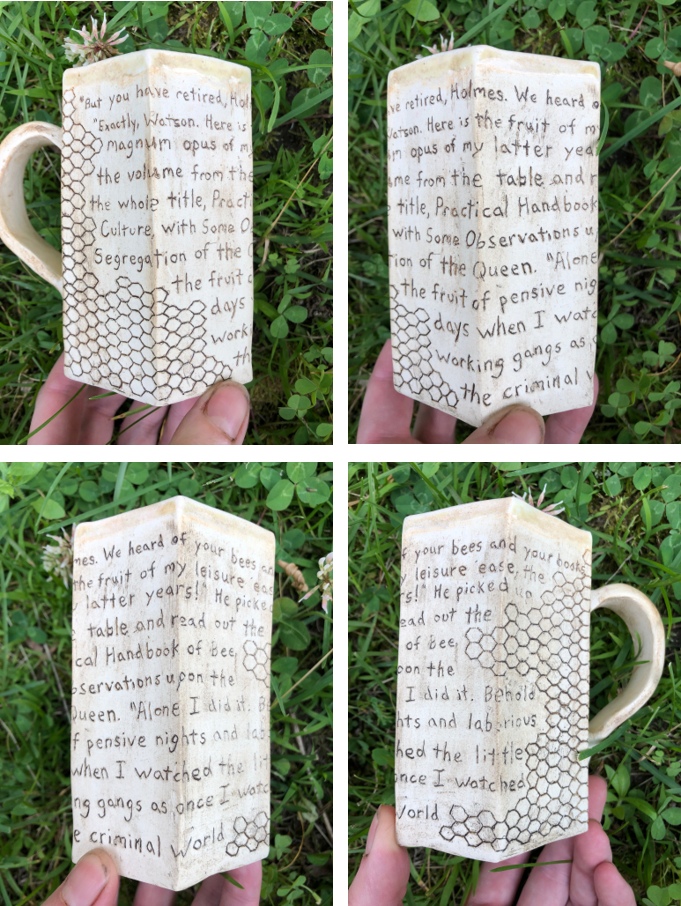 "But you have retired, Hol
"Exactly, Watson. Here is
magnum opus of m
the volume from the
the whole title, Practi
Culture, with Some O
Segregation of the
the fruit o
days
work
th
ve retired, Holmes. We heard o
Watson. Here is the fruit of my
m opus of my latter yea
me from the table and r
title, Practical Handbook
with Some Observations u
ion of the Queen. "Alone
the fruit of pensive nig
days when I watc
working gangs as
the criminal
mes. We heard of your bees an
the fruit of my leisure ease
latter years!" He picked
table and read out the
cal Handbook of bee
bservations upon the
Queen. "Alone I did it. Be
f pensive nights and lab
when I watched the lit
ng gangs as once I watc
e criminal world
f your bees and your books
y leisure ease, the
rs!" He picked up
ead out the
of bee
pon the
I did it. Behold
hts and laborious
hed the little
once I watched
world